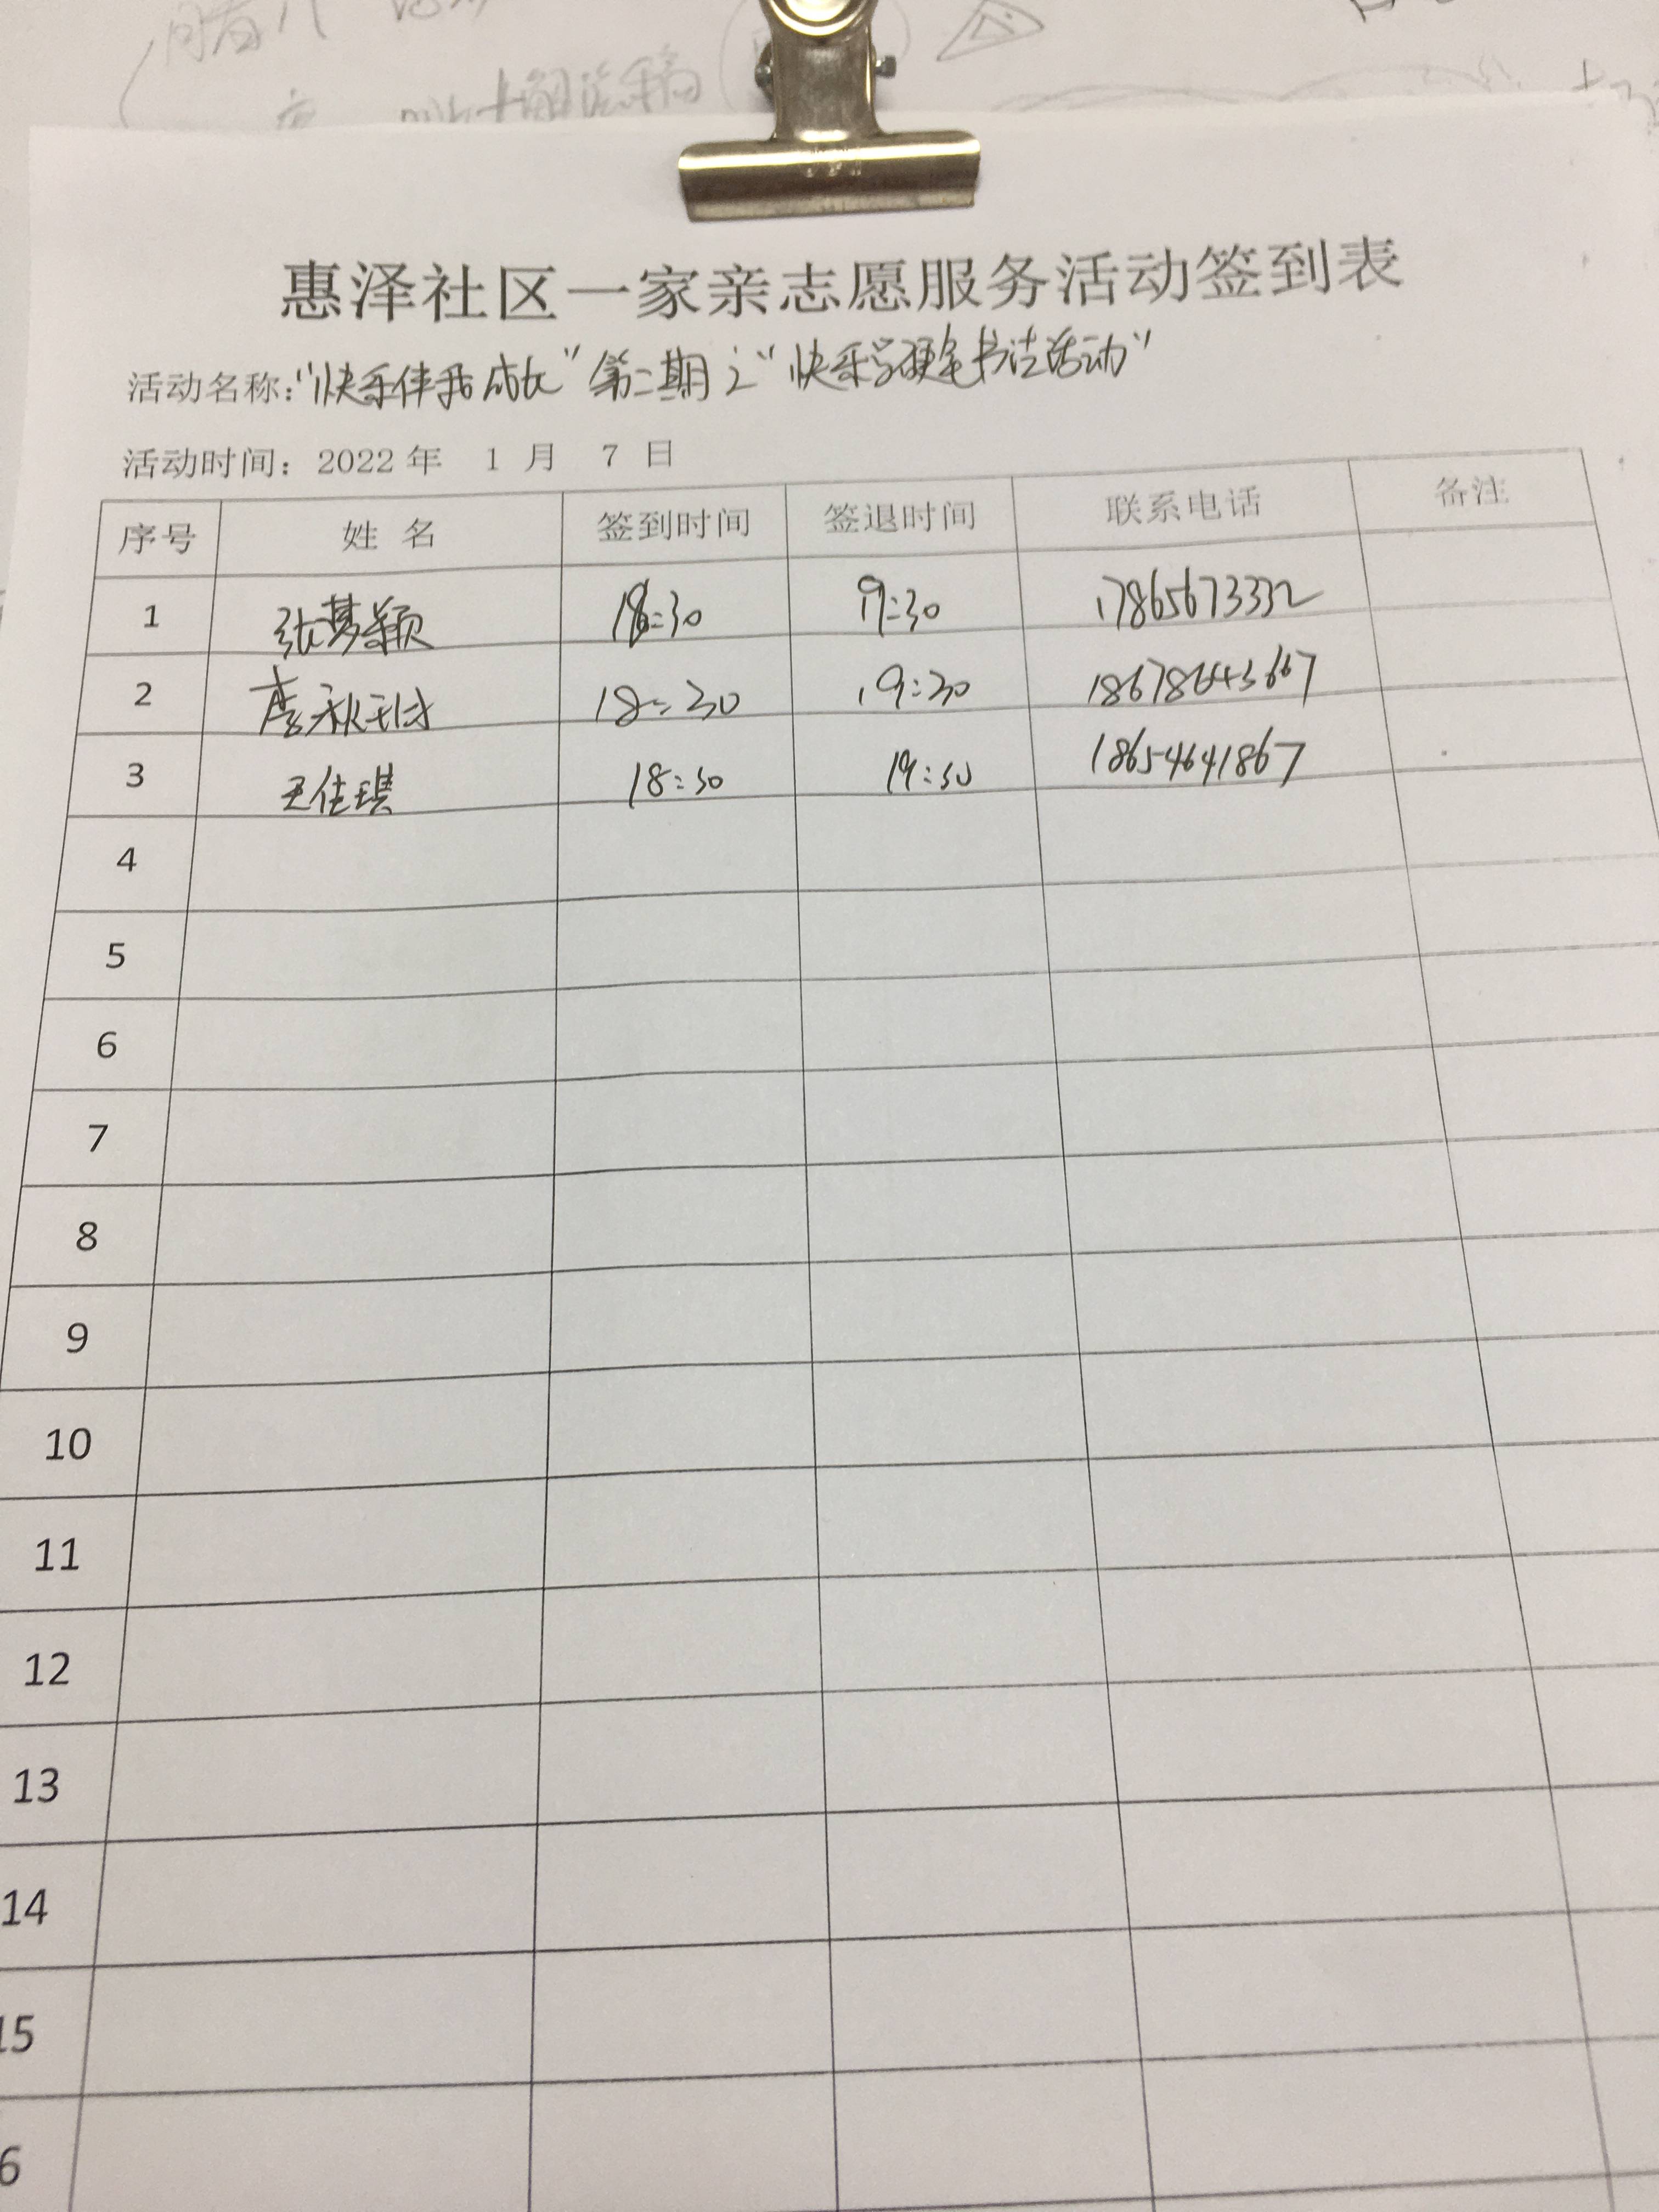 惠泽社区一家亲志愿服务活动签到表
活动名称:"快乐伴我成长"第二期之"快乐学硬笔书法活动"
活动时间: 2022 年 1 月 7 日
序号 姓 名 签到时间 签退时间 联系电话 备注
1 张梦颖 18:30 19:30 17865673332
2 李秋 18:30 19:30 18678643667
3 王佳琪 18:30 19:30 18654641867
4
5
6
7
8
9
10
11
12
13
14
15
6